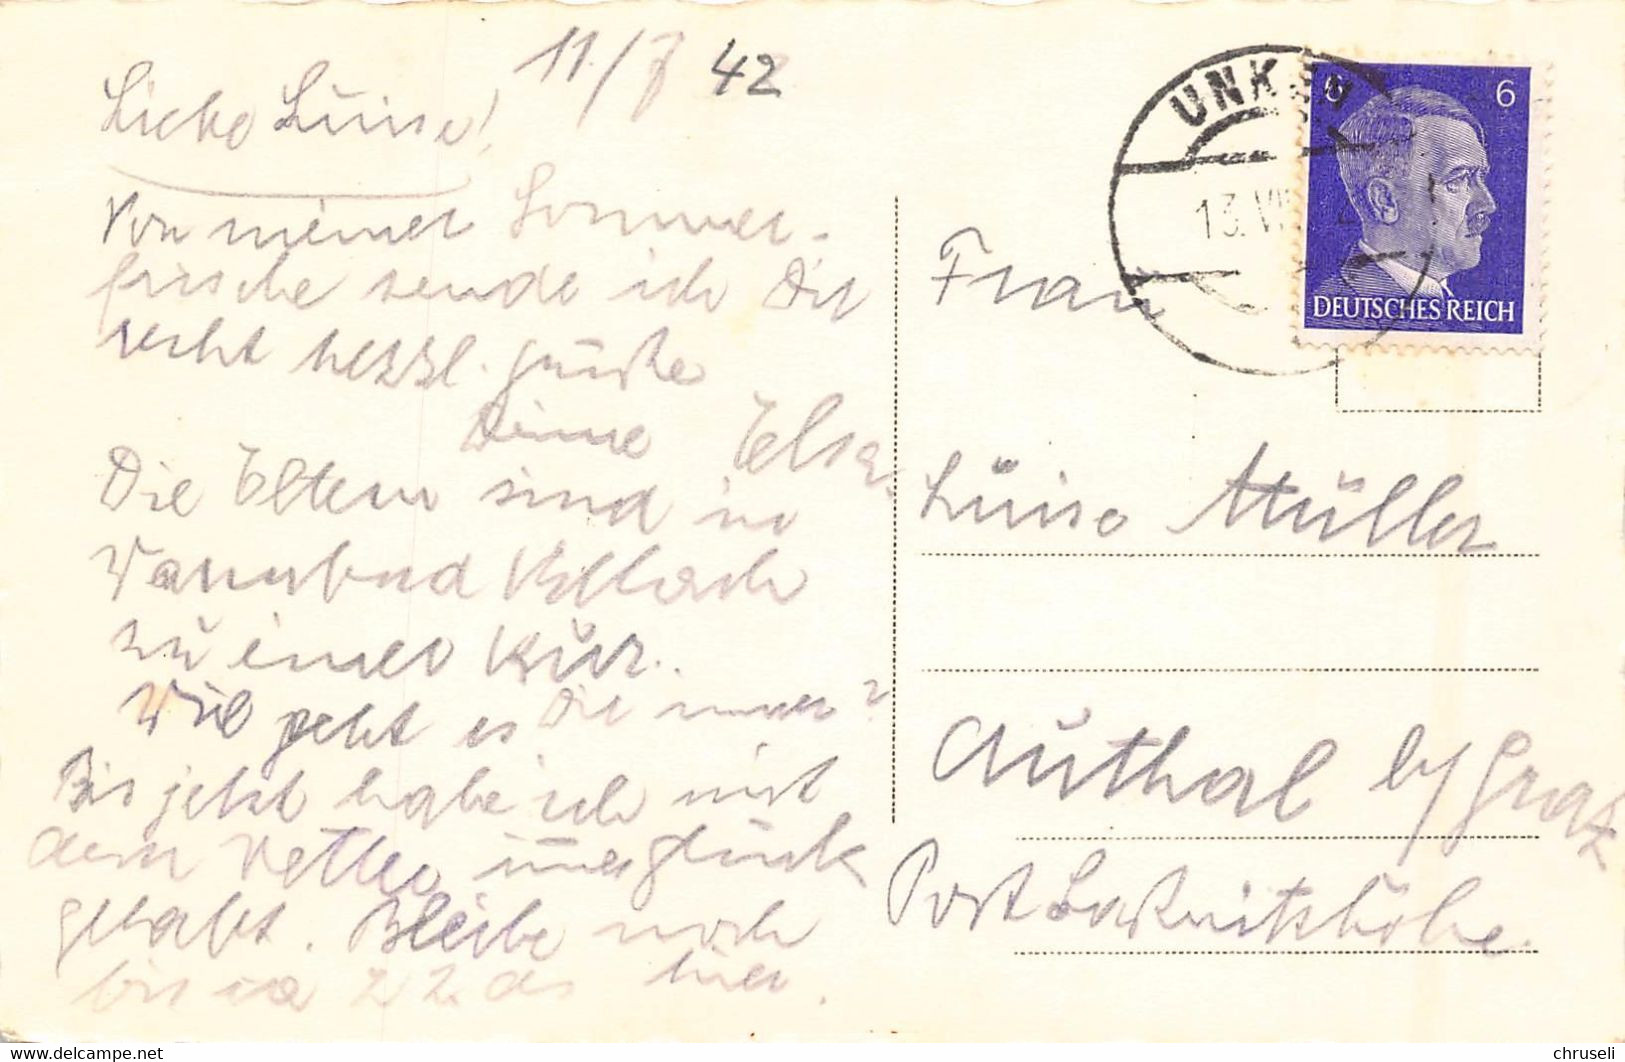 11/7 42
Liebe Luise!
Von meiner Sommer-
frische sende ich Dir
recht herzl. Grüße
Deine Elsa.
Die Eltern sind in
Warmbad Villach
zu einer Kur.
Wie geht es Dir immer?
Bis jetzt habe ich mit
dem Wetter Glück
gehabt. Bleibe noch
bis ca 22. ds hier.
UNKEN
13. VII
6
6
DEUTSCHES REICH
Frau
Luise Müller
Authal b/Graz
Post Laßnitzhöhe.
www.delcampe.net
chruseli